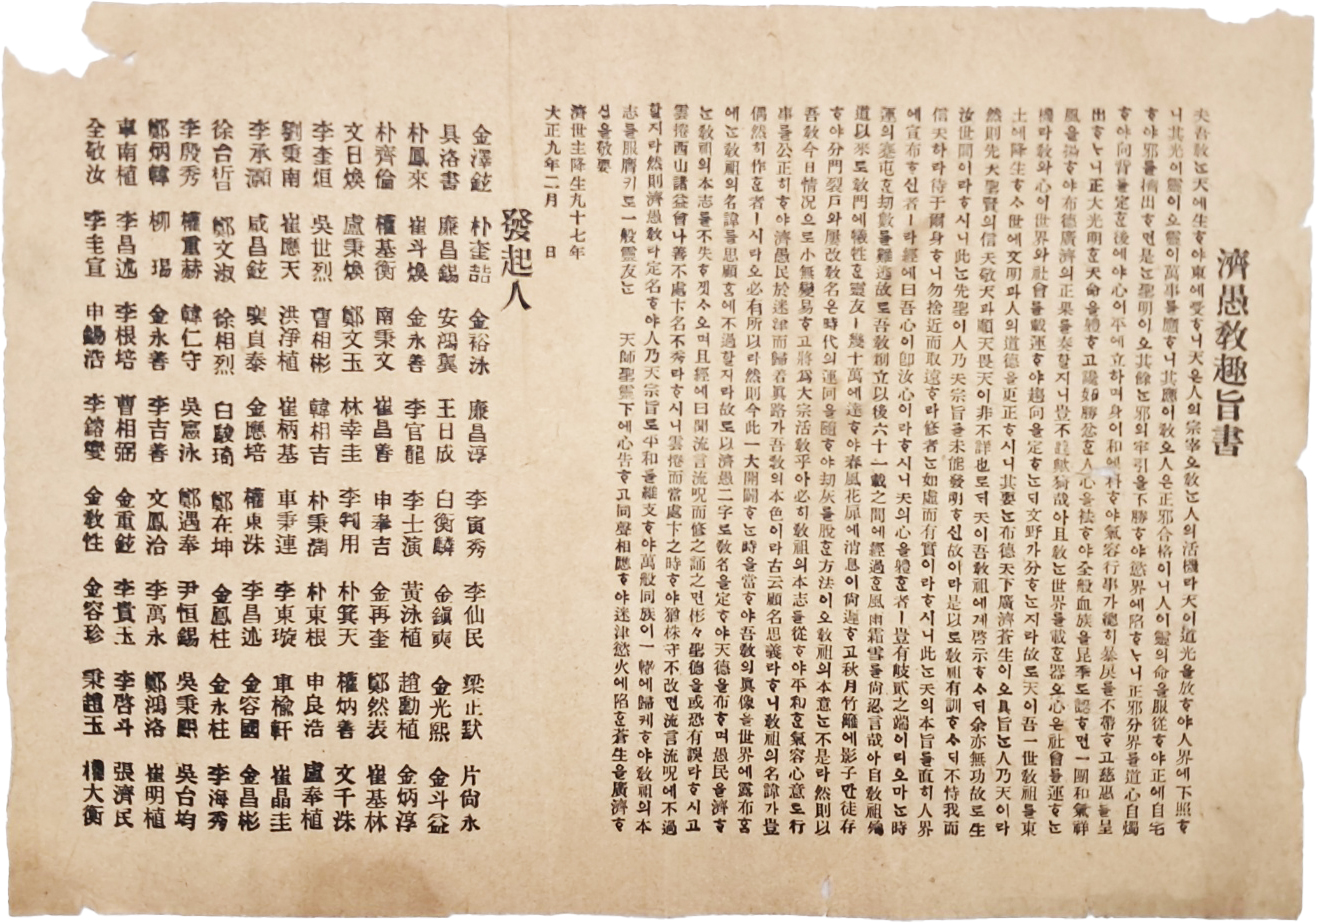 濟愚敎趣旨書
夫吾敎는天에生하야東에受하니天은人의宗宰오敎는人의活機라天이道光을放하야人界에下照하
니其光이靈이오靈이萬事를應하니其應이敎오人은正邪合格이니人이靈의命을服從하야正에自宅
하야邪를擠出하면是는聖明이오其餘는邪의牢引을不勝하야慾界에陷하나니正邪分界를道心自燭
하야向背을定한後에야心이平에立하며身이和에料하야氣容行事가總히暴戾를不帶하고慈惠를呈
出하나니正大光明한天命을體하고讒妬勝忿한人心을袪하야全般血族을昆季로認하면一團和氣祥
風을揚하야布德廣濟의正果를奏할지니豈不謹歟猗哉아且敎는世界를載한器오心은社會를運하는
機라敎와心이世界와社會를載運하야趨向을定하는되文野가分하는지라故로天이吾一世敎祖를東
土에降生하사世에文明과人의道德을更正하시니其要는布德天下廣濟蒼生이오其旨는人乃天이라
然則先天聖賢의信天敬天과順天畏天이非不詳也로되天이吾敎祖에게啓示하사되余亦無功故로生
汝世間이라하시니此는先聖이人乃天宗旨를未能發明하신故이라是以로敎祖有訓하사되不恃我而
信天하라待于爾身하니勿捨近而取遠하라修者는如虛而有實이라하시니此는天의本旨를直히人界
에宣布하신者ㅣ라經에曰吾心이卽汝心이라하시니天의心을體한者ㅣ豈有岐貳之端이리오마는時
運의蹇屯한劫數를難逃故로吾敎刱立以後六十一載之間에經過한風雨霜雪를尙忍言哉아自敎祖殉
道以來로敎門에犧牲한靈友ㅣ幾十萬에達하야春風花席에消息이尙遲하고秋月竹籬에影子만徒存
하야分門裂戶와屢改敎名은時代의運回을隨하야劫灰를脫한方法이오敎祖의本意는不是라然則以
吾敎今日情況으로小無變易하고將爲大宗活敎乎아必히敎祖의本志를從하야平和한氣容心意로行
事를公正히하야濟愚民於迷津而歸若眞路가吾敎의本色이라古云顧名思義라하니敎祖의名諱가豈
偶然히作한者ㅣ시라오必有所以라然則今此一大開闢하는時을當하야吾敎의眞像을世界에露布홈
에는敎祖의名諱를思顧홈에不過할지라故로以濟愚二字로敎名을定하야天德을布하며愚民을濟하
는敎祖의本志를不失하깃사오며且經에曰聞流言流呪而修之誦之면彬々聖德을或恐有誤라하시고
雲捲西山諸益會나善不處卞名不秀라하시니雲捲而當處卞之時하야猶株守不改면流言流呪에不過
할지라然則濟愚敎라定名하야人乃天宗旨로平和를維支하야萬般同族이一幣에歸케하야敎祖의本
志를服膺키로一般靈友는　天師聖靈下에心告하고同聲相應하야迷津慾火에陷한蒼生을廣濟하
심을敬要
濟世主降生九十七年
大正九年二月　日
發起人
金澤鉉 朴奎喆 金裕泳 廉昌淳 李寅秀 李仙民 梁正默 片尙永
具洛書 廉昌錫 安鴻翼 王日成 白衡麟 金鎭奭 金光熙 金斗益
朴鳳來 崔斗煥 金永善 李官龍 李士演 黃泳植 趙勳植 金炳淳
朴齊倫 權基衡 南秉文 崔昌善 申奉吉 金再奎 鄭然表 崔基林
文日煥 盧秉煥 鄭文玉 林幸圭 李判用 朴箕天 權炳善 文千洙
李奎烜 吳世烈 曹相彬 韓相吉 朴秉潤 朴東根 申良浩 盧奉植
劉秉南 崔應天 洪淨植 崔柄基 車秉連 李東璇 車楡軒 崔晶圭
李承灝 咸昌鉉 裵貞泰 金應培 權東洙 李昌述 金容國 金昌彬
徐台晢 鄭文淑 徐相烈 白駿琦 鄭在坤 金鳳柱 金永柱 李海秀
李殷秀 權重赫 韓仁守 吳憲泳 鄭遇奉 尹恒錫 吳秉熙 吳台均
鄭炳韓 柳瑒 金永善 李吉善 文鳳洽 李萬永 鄭鴻洛 崔明植
車南植 李昌述 李根培 曹相弼 金重鉉 李貴玉 李啓斗 張濟民
全敬汝 李圭宣 申錫浩 李鎔燮 金敎性 金容珍 秉趙玉 權大衡